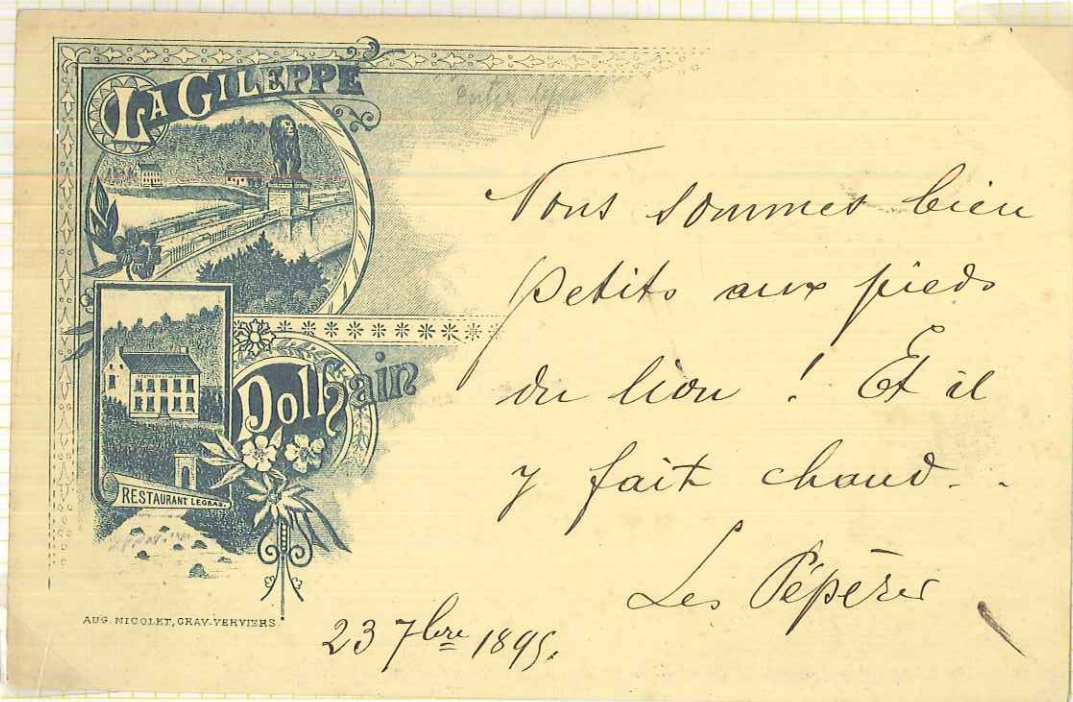 LA GILEPPE
Dolhain
RESTAURANT LEGRAS.
AUG. NICOLET, GRAV. VERVIERS.
Nous sommes bien
petits aux pieds
du lion ! Et il
y fait chaud. .
Les Pépères
23 7bre 1895.